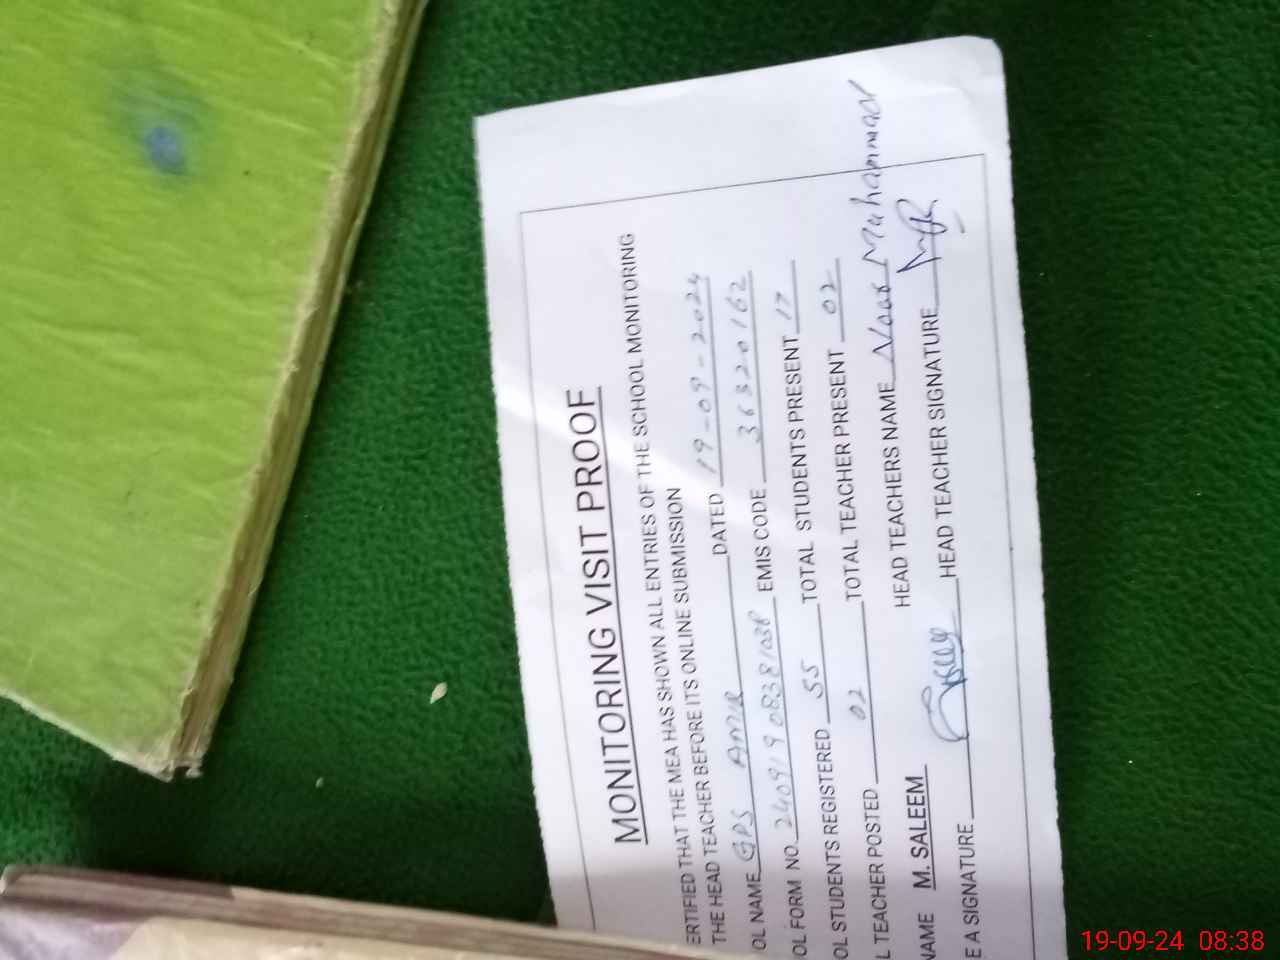 MONITORING VISIT PROOF
ERTIFIED THAT THE MEA HAS SHOWN ALL ENTRIES OF THE SCHOOL MONITORING
THE HEAD TEACHER BEFORE ITS ONLINE SUBMISSION
OL NAME GPS AMIR DATED 19-09-2024
OL FORM NO. 24091908381038 EMIS CODE 36320162
OL STUDENTS REGISTERED 55 TOTAL STUDENTS PRESENT 17
L TEACHER POSTED 02 TOTAL TEACHER PRESENT 02
NAME M. SALEEM HEAD TEACHERS NAME Noor Muhammad
E A SIGNATURE HEAD TEACHER SIGNATURE
19-09-24 08:38